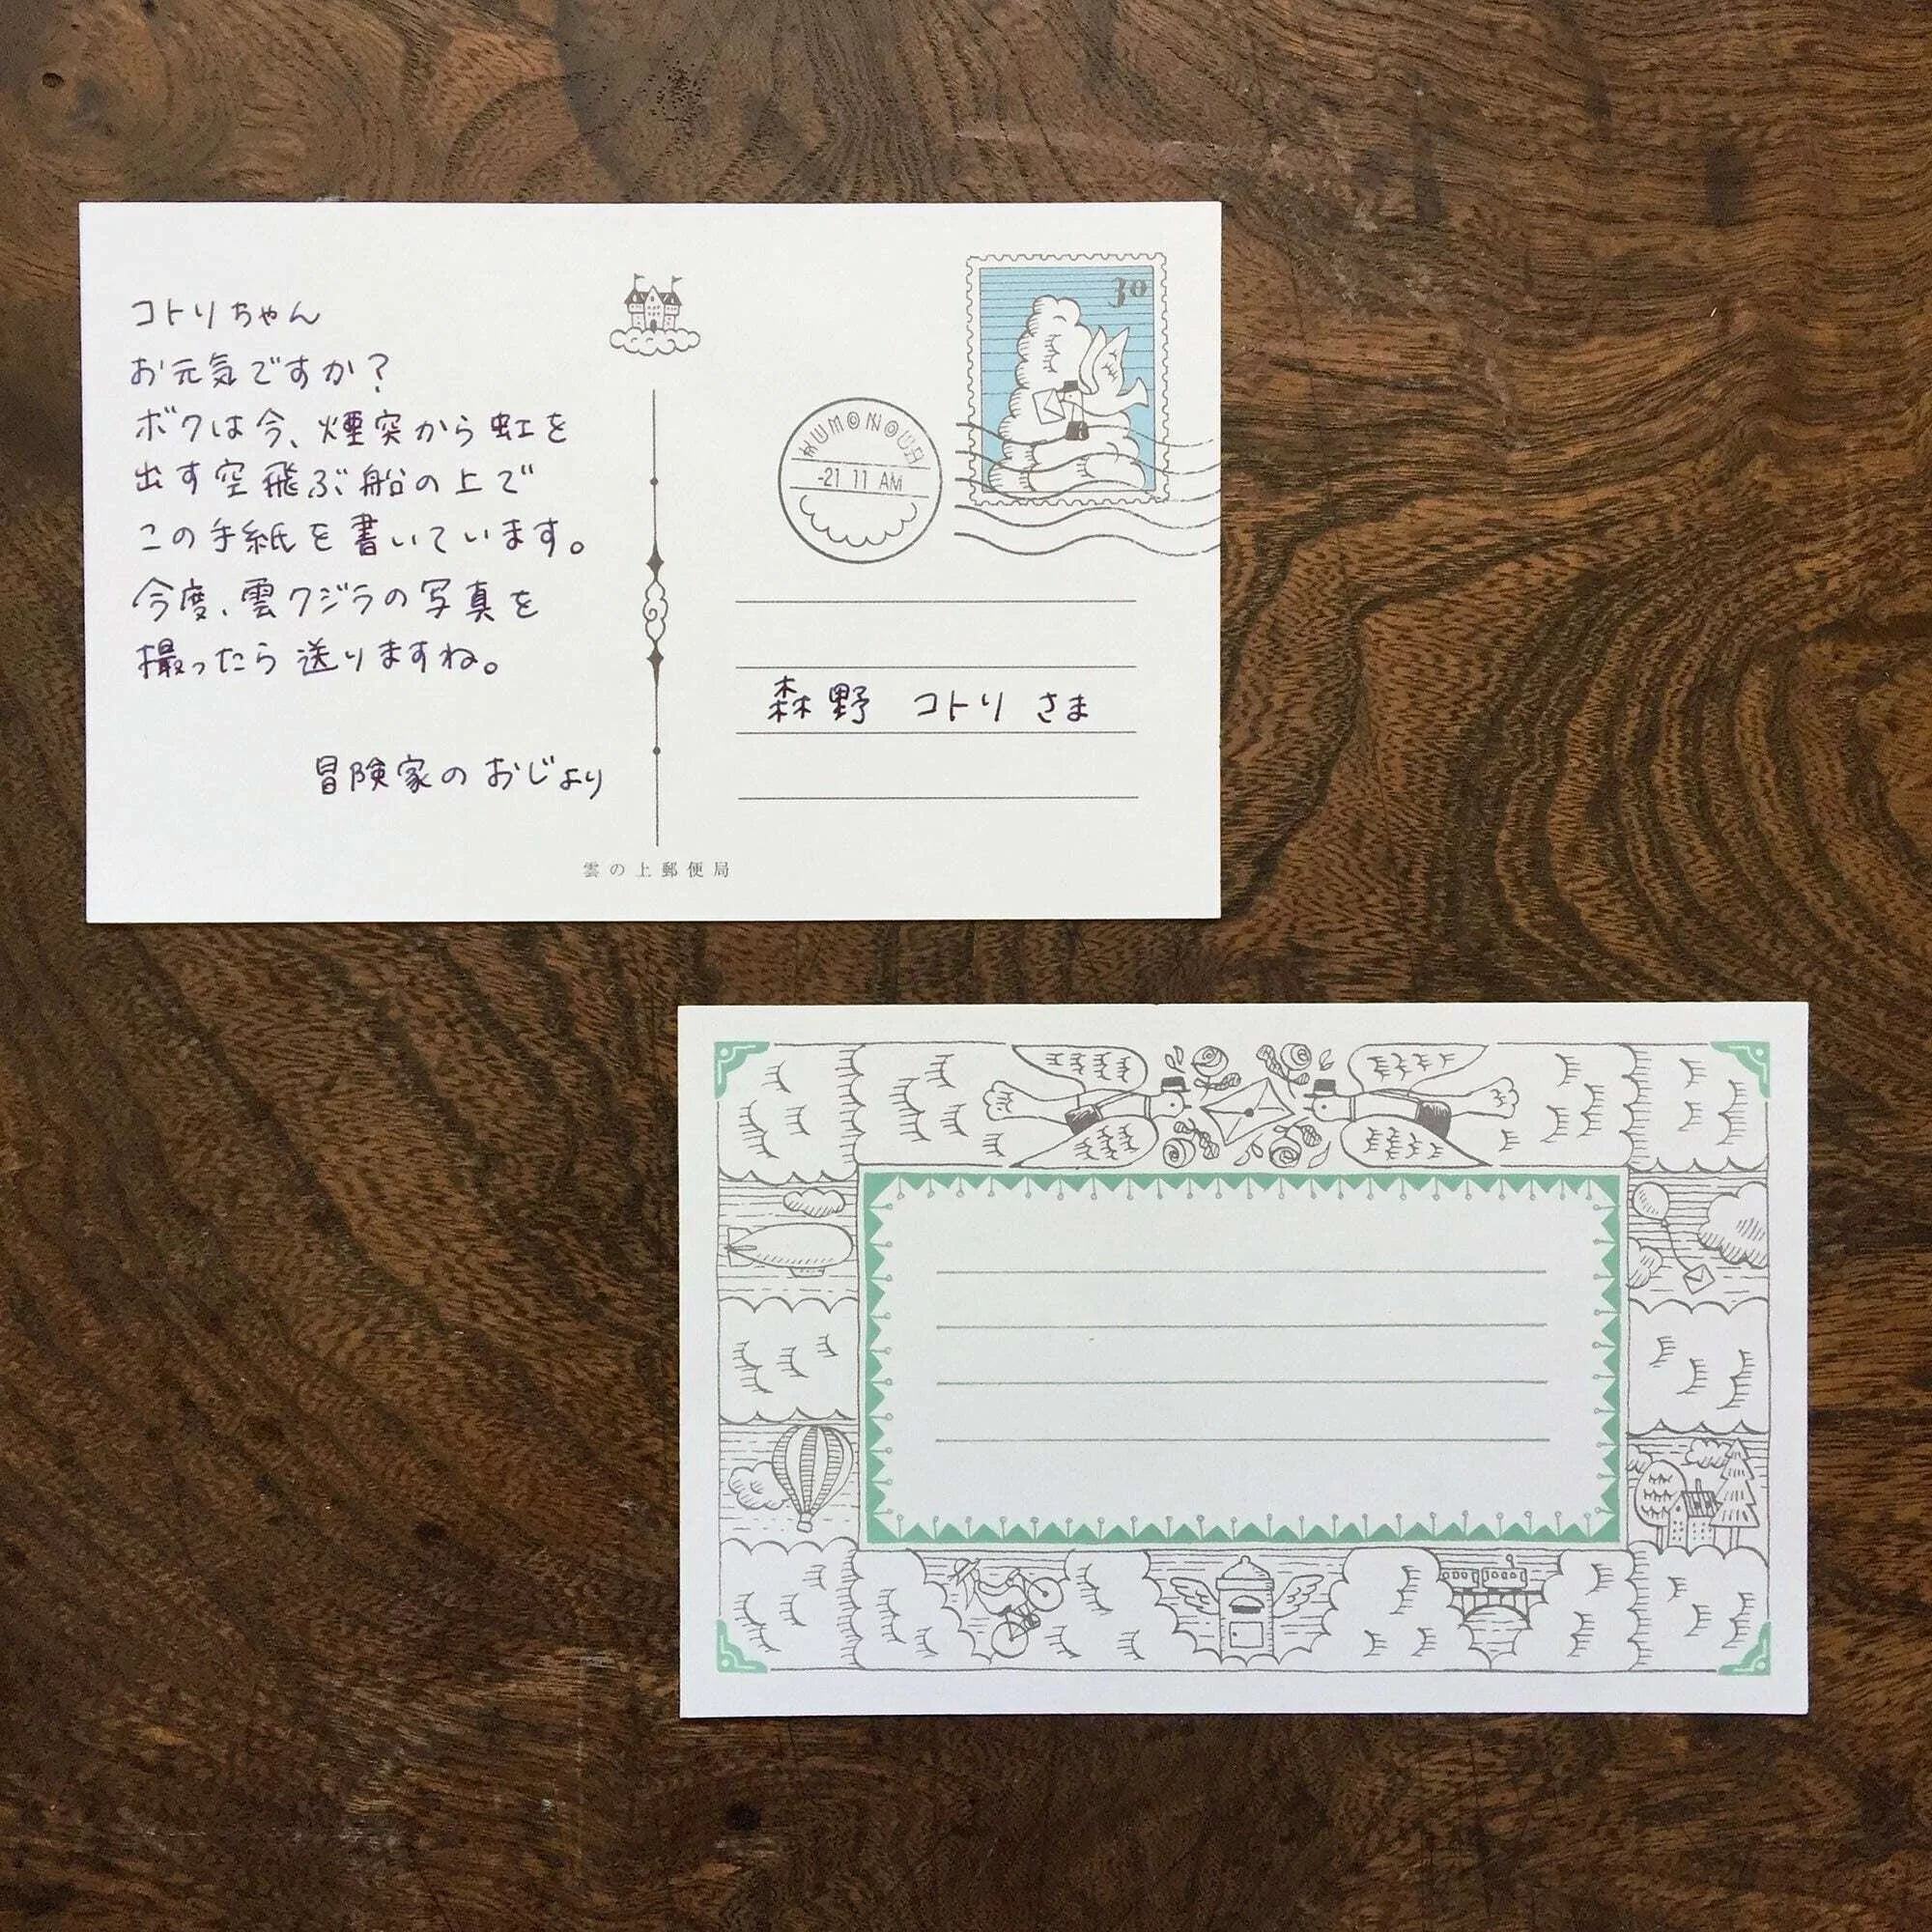 コトリちゃん
お元気ですか?
ボクは今、煙突から虹を
出す空飛ぶ船の上で
この手紙を書いています。
今度、雲クジラの写真を
撮ったら送りますね。
冒険家のおじより
30
KUMONOUE
-21 11 AM
森野 コトリ さま
雲の上郵便局